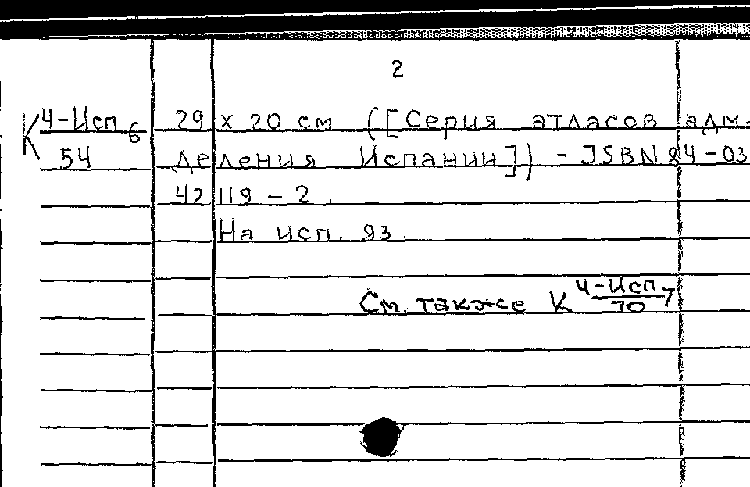 2
К 4-Исп 6 29 х 20 см ([Серия атласов адм.
54 деления Испании]) - ISBN 84-03
42119-2.
На исп. яз.
См. также К 4-Исп 7
70